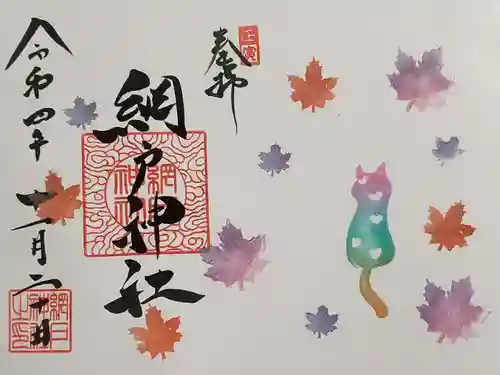 奉拝
壬寅
網戸神社
網戸神社
令和四年十一月二十日
網戸神社之印